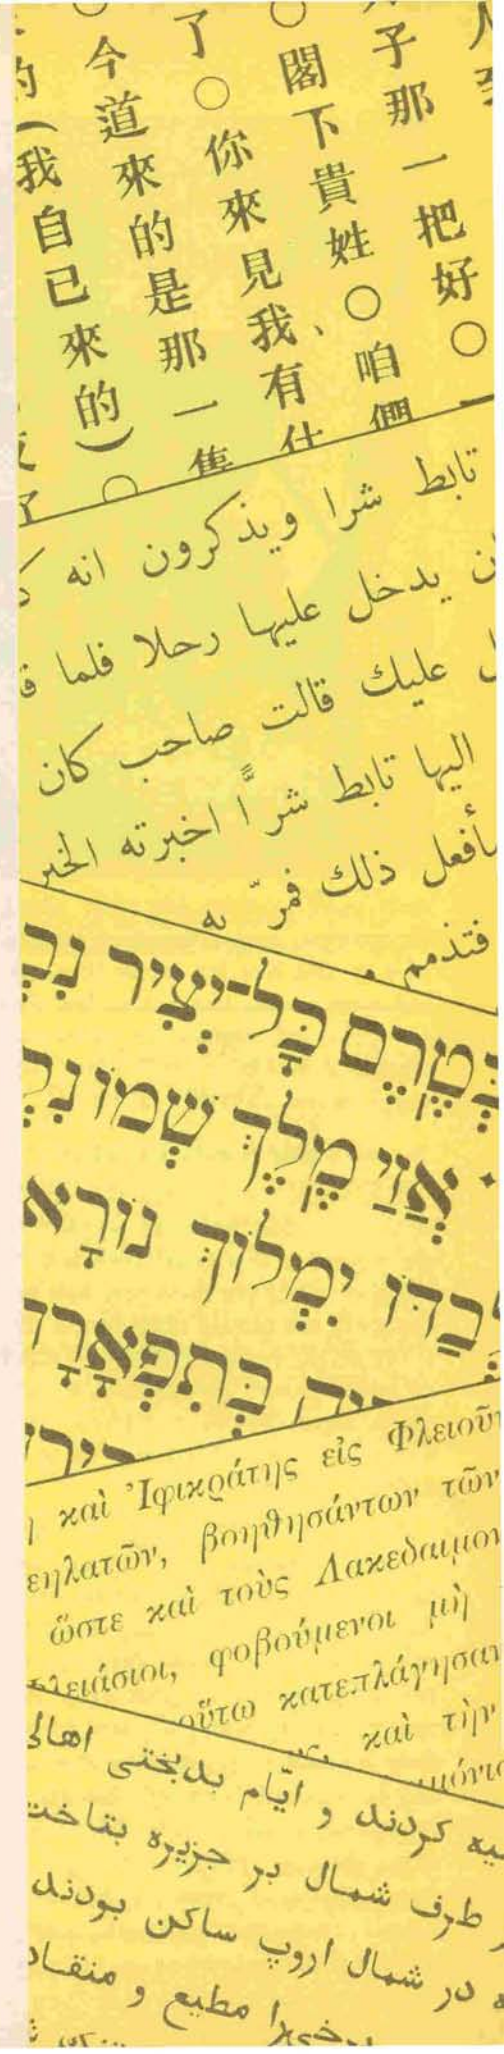 子那一把好○一
○閣下貴姓○咱們
了○你來見我、有什
○今道來的是那一隻
的(我自已來的)○
تابط شرا ويذكرون انه
يدخل عليها رحلا فلما
عليك قالت صاحب كان
اليها تابط شرًّا اخبرته الخبر
ذلك فمرّ به
فتذمم
בְּטֶרֶם כָּל־יְצִיר
אֲזַי מֶלֶךְ שְׁמוֹ
לְבַדּוֹ יִמְלוֹךְ נוֹרָא
בְּתִפְאָרָה
καὶ Ἰφικράτης εἰς Φλειοῦν
εηλατῶν, βοηθησάντων τῶν
ὥστε καὶ τοὺς Λακεδαιμον
λειάσιοι, φοβούμενοι μὴ
οὕτω κατεπλάγησαν
καὶ τὴν
كردند و ايّام بدبختى اهالى
طرف شمال بر جزيره بتاخت
در شمال اروپ ساكن بودند
مطيع و منقاد